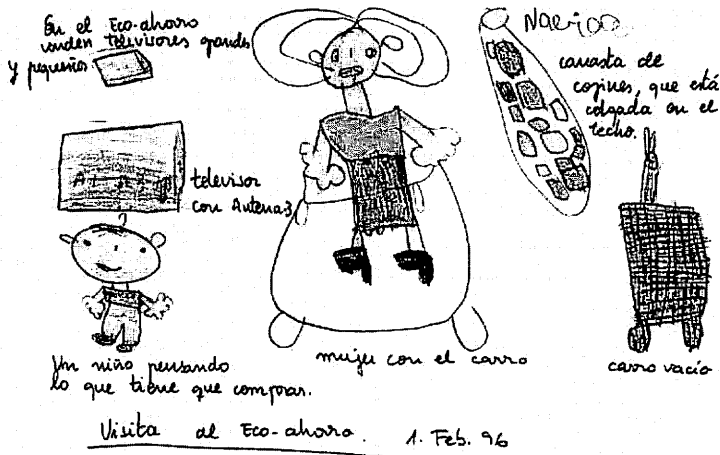 En el Eco-ahorro
venden televisores grandes
y pequeños
Nacico
canasta de
cojines, que está
colgada en el
techo.
televisor
con Antena3
Un niño pensando
lo que tiene que comprar.
mujer con el carro
carro vacío
Visita al Eco-ahorro. 1. Feb. 96